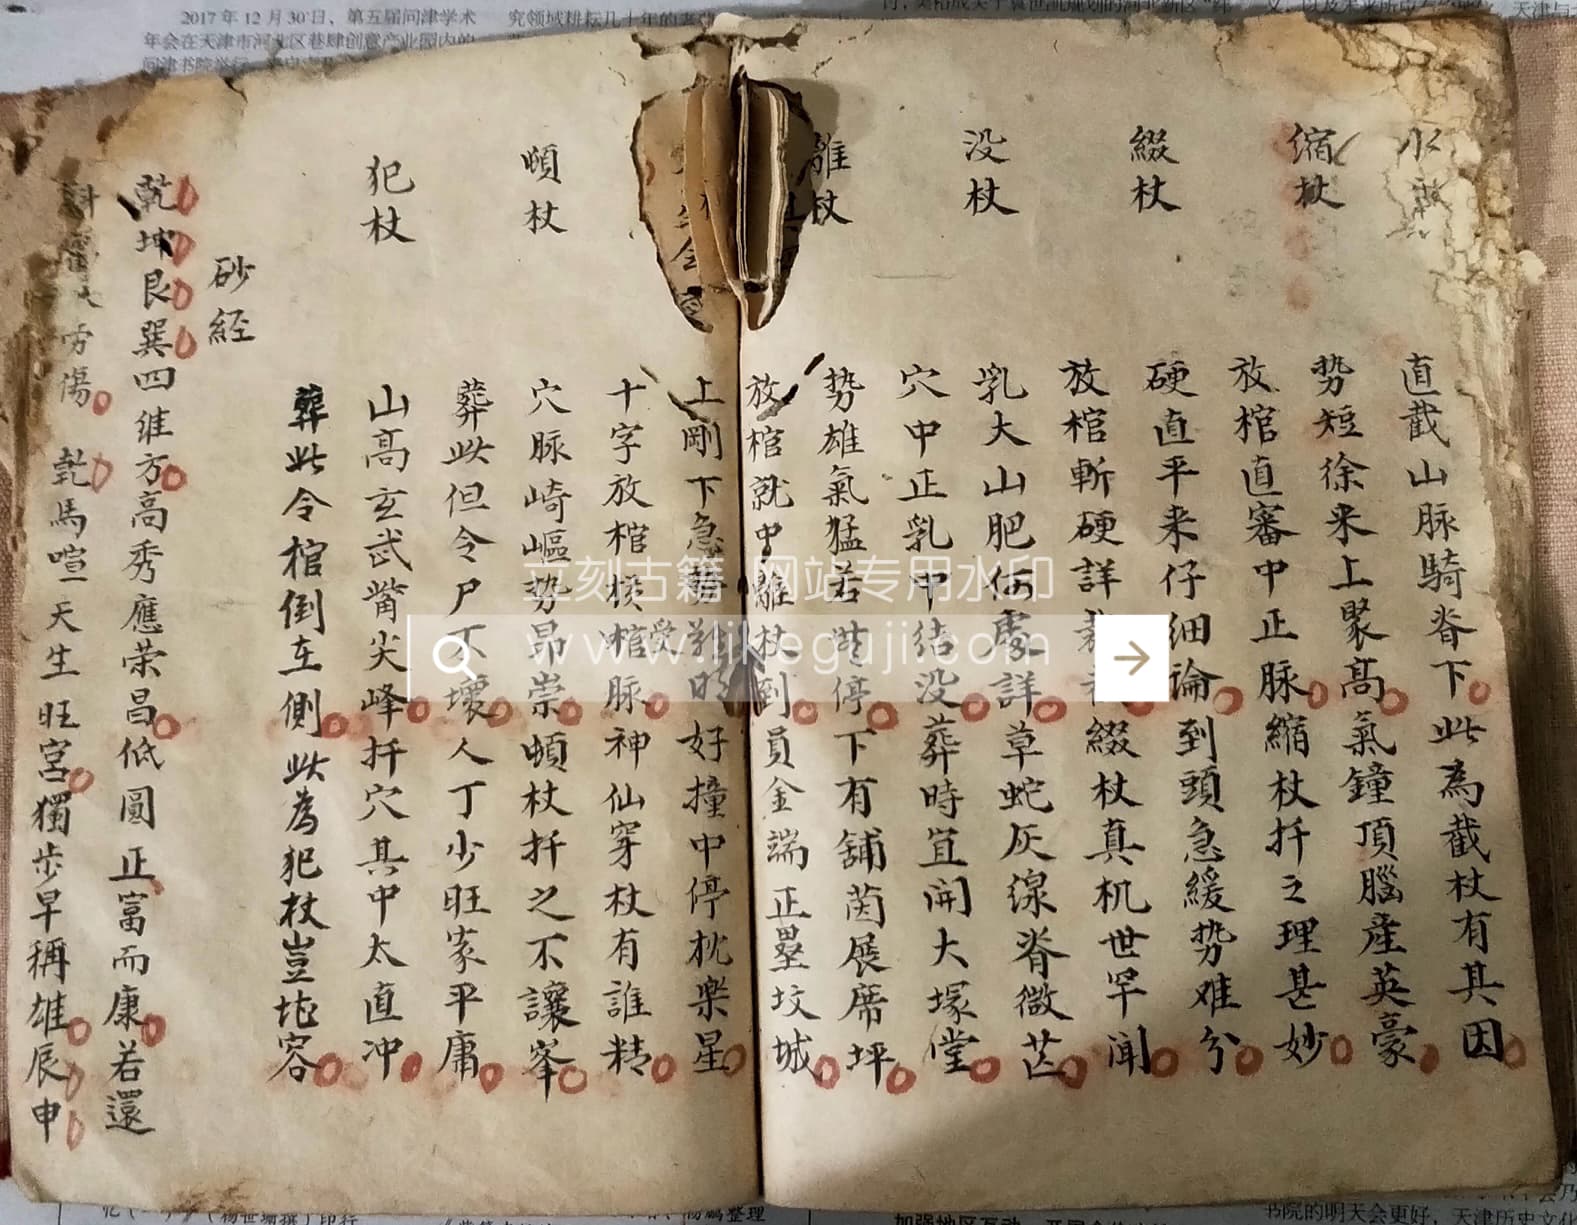 直截山脉騎脊下此為截杖有其因
縮杖
势短徐来上聚高氣鐘頂腦産英豪
放棺直審中正脉縮杖扦之理甚妙
綴杖
硬直平来仔细論到頭急緩势难分
放棺斬硬詳綴杖真机世罕闻
没杖
乳大山肥何處詳草蛇灰線脊微茫
穴中正乳中结没葬時宜開大塚堂
離杖
势雄氣猛若此停下有鋪茵展席坪
放棺就中離杖到員金端正壘坟城
上剛下急好撞中停枕樂星
十字放棺棺受脉神仙穿杖有誰精
頓杖
穴脉崎嶇势昂崇頓杖扦之不讓峯
葬此但令尸不壞人丁少旺家平庸
犯杖
山高玄武嘴尖峰扦穴其中太直冲
葬此令棺倒左側此為犯杖豈堪容
砂经
乾坤艮巽四维方高秀應荣昌低圓正富而康若還
方傷乾馬喧天生旺宫獨步早稱雄辰申
立刻古籍 网站专用水印
www.likeguji.com
2017年12月30日，第五届问津学术
年会在天津市河北区巷肆创意产业园内的